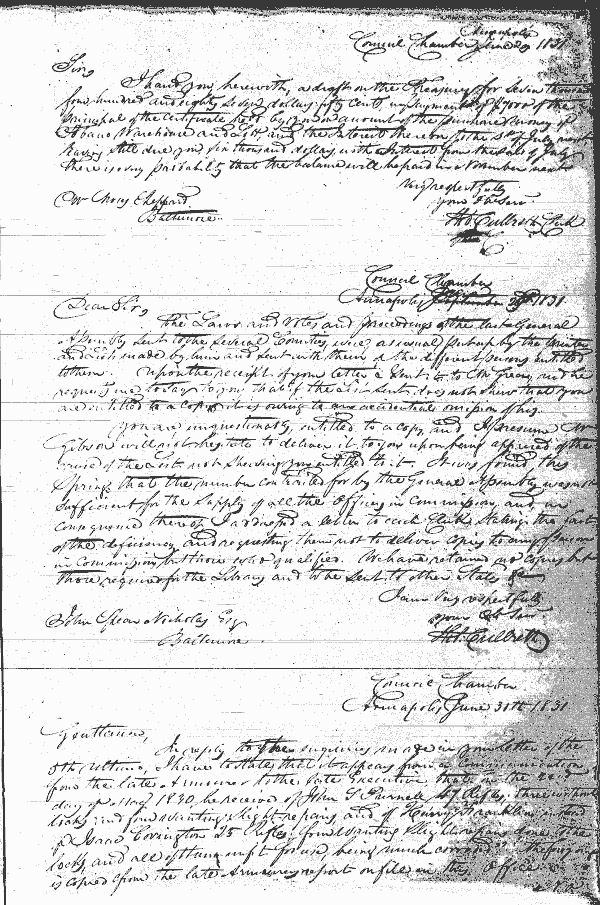 Annapolis
Council Chamber June 29 1831
Sir,
I hand you herewith, a draft on the Treasury for Seven thousand
four hundred and eighty seven dollars fifty Cents, in payment of $7000 of the
principal of the Certificate held by you on account of the purchase money of
Tobacco Warehouse and Lot, and the interest thereon to the 1st of July next
leaving still due you six thousand dollars with interest from the 1st of July
there is every probability that the balance will be paid in November next
Very respectfully
your Ob. Serv.
Mr Moses Sheppard
Baltimore
Th. Culbreth Clk
Council Chamber
Annapolis 1831
Dear Sir,
The Laws and Votes and proceedings of the last General
Assembly sent to the several Counties, were as usual put up by the printer
and Lists made by him and sent with them of the different persons entitled
to them. Upon the receipt of your letter I sent to Mr Green, and he
requests me to day to you that if the List sent does not shew that you
are entitled to a Copy it is owing to an accidental omission of his.
You are unquestionably entitled to a copy, and I presume Mr
Gibson will not hesitate to deliver it to you upon being apprised of the
cause of the List not shewing you entitled to it. It was found, this
Spring that the number contracted for by the General Assembly was not
sufficient for the supply of all the Officers in Commission, and in
consequence thereof I addressed a letter to each Clerk stating the fact
of the deficiency and requesting them not to deliver copies to any person
in Commission but those who qualified. We have retained no copies but
those required for the Library and to be sent to other States &c
I am Very respectfully
your Ob Serv.
John Spear Nicholas Esq
Baltimore
Th. Culbreth
Council Chamber
Annapolis, June 30th 1831
Gentlemen,
In reply to the inquiries made in your letter of the
8th Ultimo, I have to state that it appears from a Communication
from the late Armourer to the late Executive that on the
day of May 1830, he received of John S Purnell 47 Rifles, three without
locks and four wanting slight repairs and of Henry Franklin, in
of Isaac Covington 25 Rifles, four wanting slight repairs done to the
locks, and all of them unfit for use, being much corroded. The foregoing
is copied from the late Armourers report on file in this Office